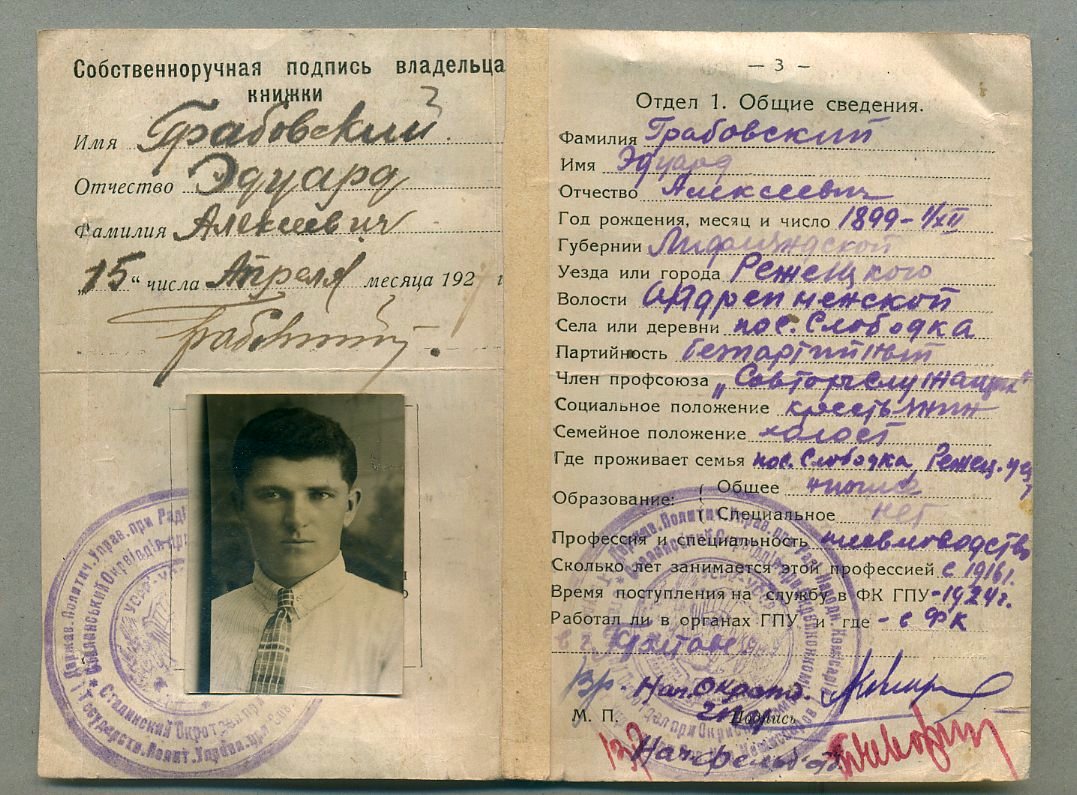 Собственноручная подпись владельца
книжки
Имя Грабовский
Отчество Эдуард
Фамилия Алексеевич
„15“ числа Апреля месяца 192 г
Грабовский
— 3 —
Отдел 1. Общие сведения.
Фамилия Грабовский
Имя Эдуард
Отчество Алексеевич
Год рождения, месяц и число 1899 - 1/XII
Губернии Лифляндской
Уезда или города Режецкого
Волости Андрепненской
Села или деревни пос. Слободка
Партийность безпартийный
Член профсоюза „Совторгслужащих"
Социальное положение крестьянин
Семейное положение холост
Где проживает семья пос. Слободка Режец. уез
Образование: Общее низшее
Специальное нет
Профессия и специальность
Сколько лет занимается этой профессией с 1916 г.
Время поступления на службу в ФК ГПУ - 1924 г.
Работал ли в органах ГПУ и где - с ФК
в г.
Вр. Нач. Окротд.
М. П. Подпись
ГПУ
Нач.
Держав. Политич. Управ. при Раді
Народн. Комісарів
УСРР
Сталинский Окротдел